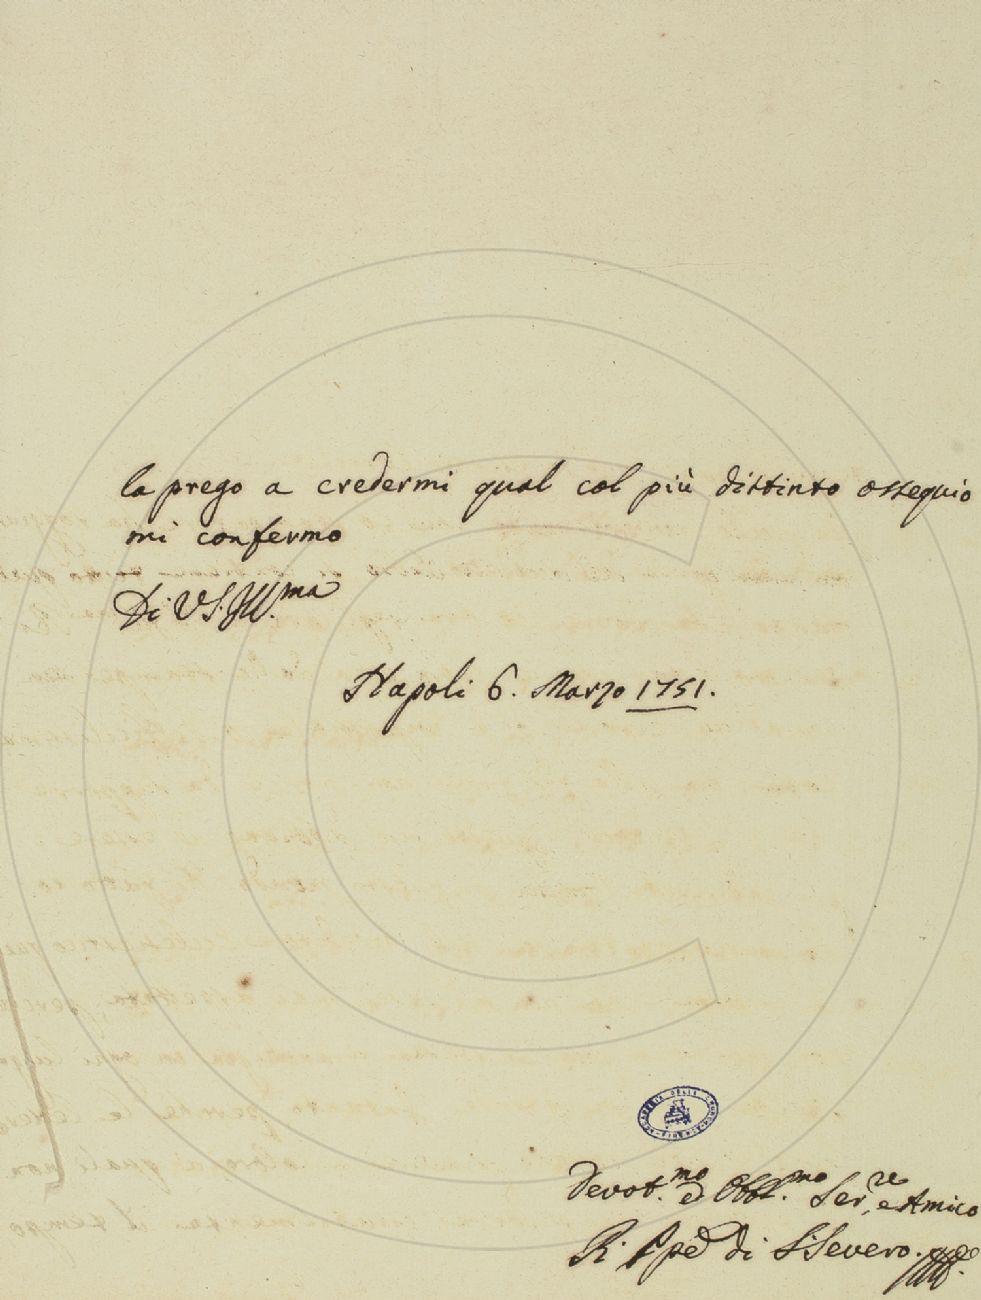 la prego a credermi qual col più distinto ossequio
mi confermo
Di V.S. Ill.ma
Napoli 6. Marzo 1751.
Devot.mo ed Obbl.mo Ser.re e Amico
di S. Severo.